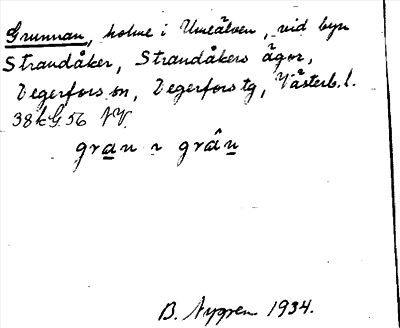 Grunnan, holme i Umeälven, vid byn
Strandåker, Strandåkers ägor,
Degerfors sn, Degerfors tg, Västerb. l.
38kG56 NV.
gran ~ grân
B. Nygren 1934.